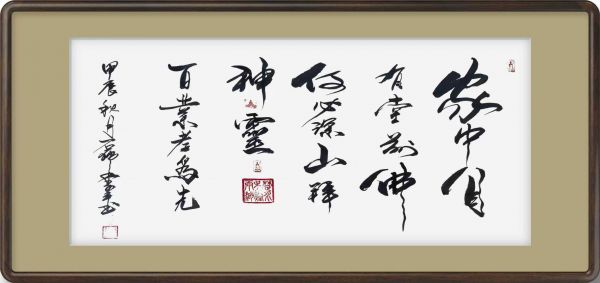 家中自
有堂前佛
何必深山拜
神靈
百業孝為先
甲辰秋月磊書